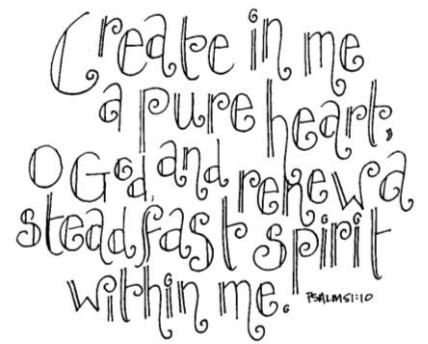 Create in me
a pure heart,
O God, and renew a
steadfast spirit
within me.
PSALM 51:10